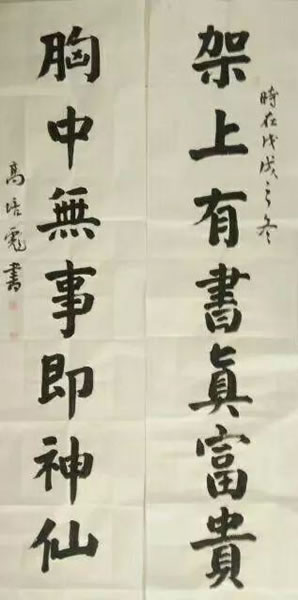 架上有書真富貴
時在戊戌之冬
胸中無事即神仙
高培彪書